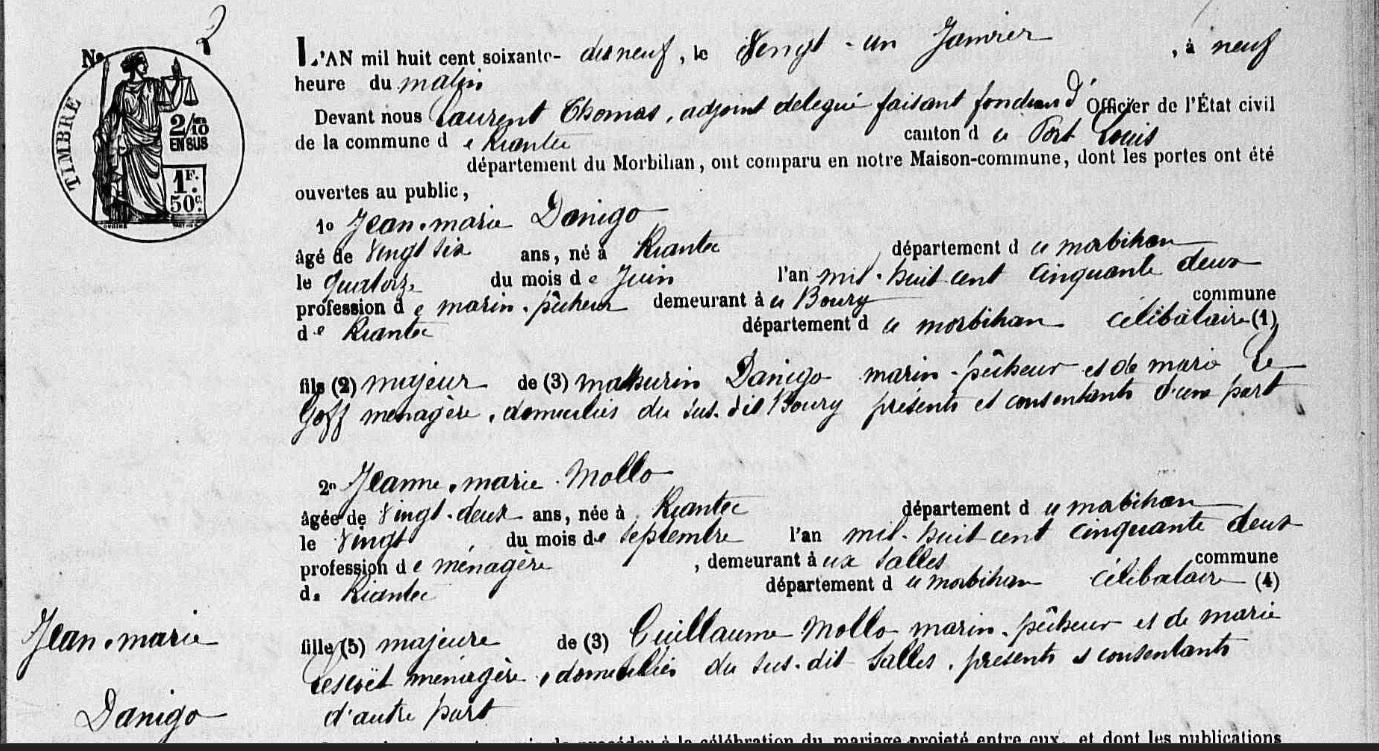 No 2
TIMBRE
2/10 EN SUS
1 F. 50 c.
L'AN mil huit cent soixante- disneuf, le vingt-un Janvier, à neuf
heure du matin
Devant nous Laurent Thomas, adjoint delegué faisant fonctions d' Officier de l'État civil
de la commune d e Riantec canton d u Port Louis
département du Morbihan, ont comparu en notre Maison-commune, dont les portes ont été
ouvertes au public,
1o Jean-marie Danigo
âgé de vingt six ans, né à Riantec département d u morbihan
le Quatorze du mois d e Juin l'an mil-huit cent cinquante deux
profession d e marin-pêcheur demeurant à u Boury commune
d e Riantec département d u morbihan célibataire (1)
fils (2) majeur de (3) mathurin Danigo marin-pêcheur et de marie Le
Goff ménagère, domiciliés du sus-dit Boury présents et consentants d'une part
2o Jeanne-marie Mollo
âgée de vingt-deux ans, née à Riantec département d u morbihan
le vingt du mois de septembre l'an mil-huit cent cinquante deux
profession d e ménagère, demeurant à ux Salles commune
de Riantec département d u morbihan célibataire (4)
fille (5) majeure de (3) Guillaume Mollo marin-pêcheur et de marie
ménagère, domiciliés du sus-dit Salles, présents et consentants
d'autre part
Jean-marie
Danigo
procéder à la célébration du mariage projeté entre eux, et dont les publications